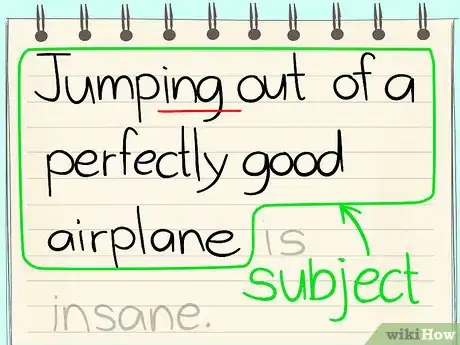 Jumping out of a
perfectly good
airplane is
subject
insane.
wikiHow